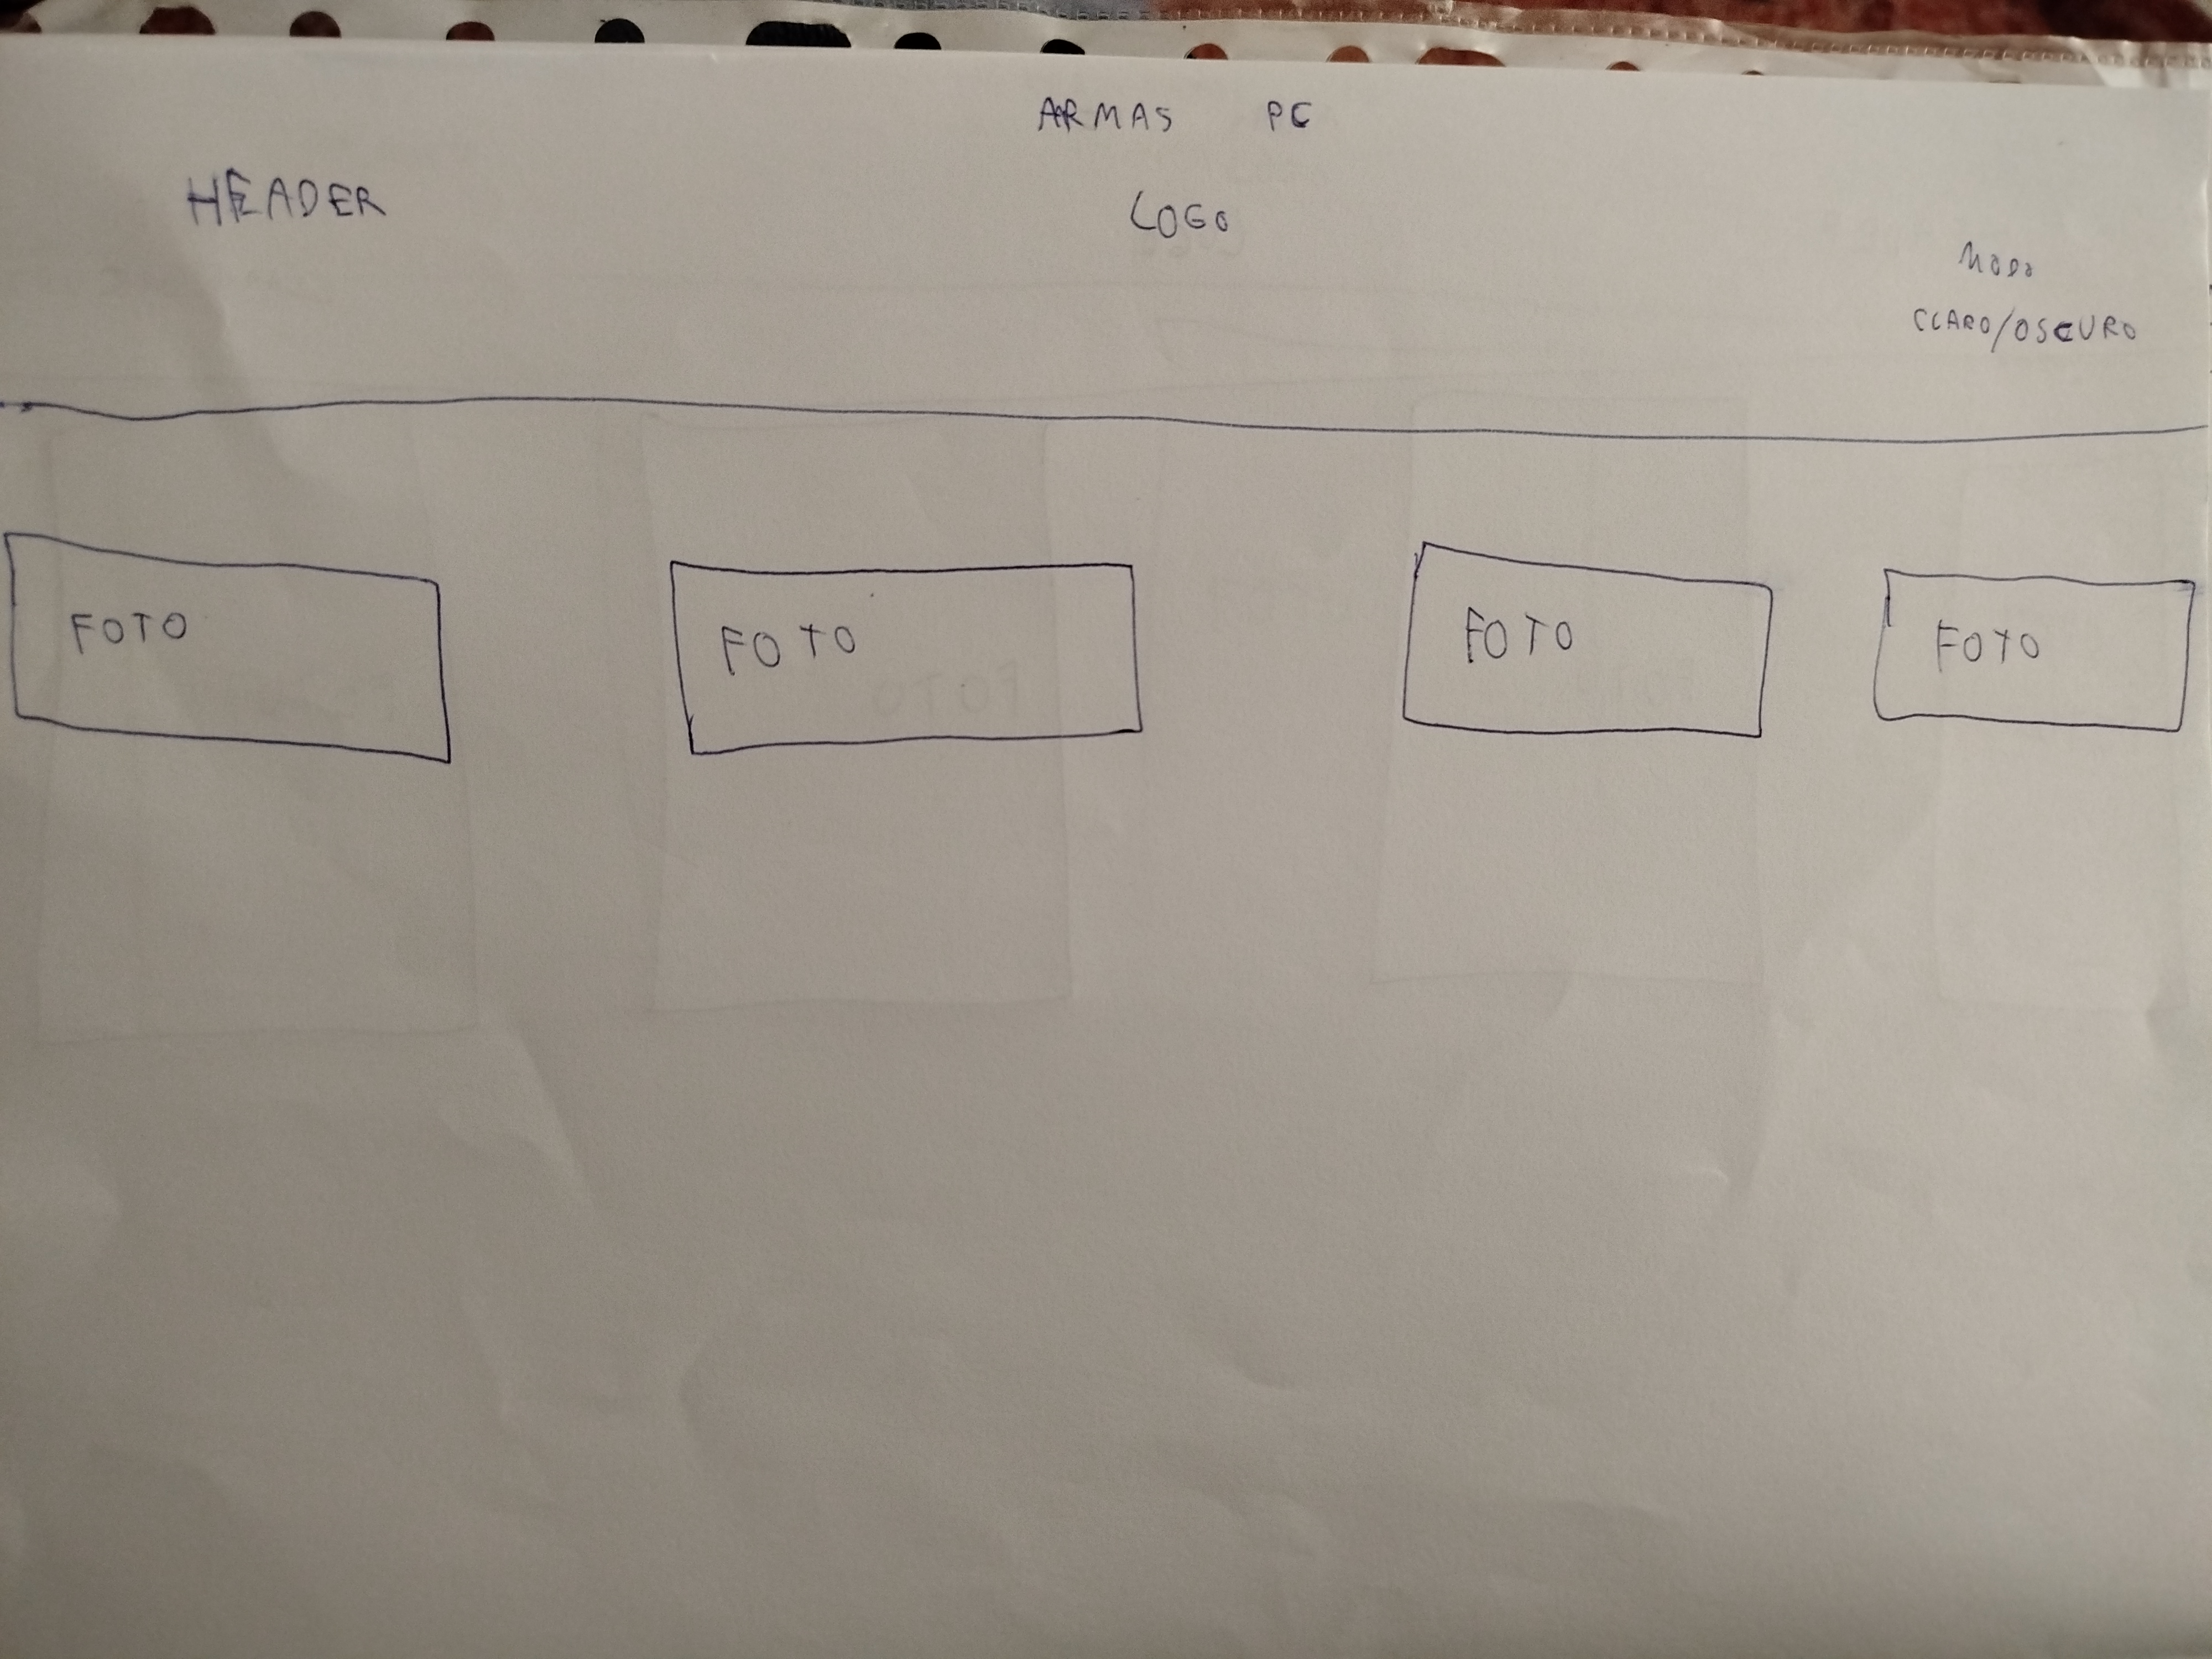 ARMAS PC
HEADER
LOGO
MODO
CLARO/OSCURO
FOTO
FOTO
FOTO
FOTO